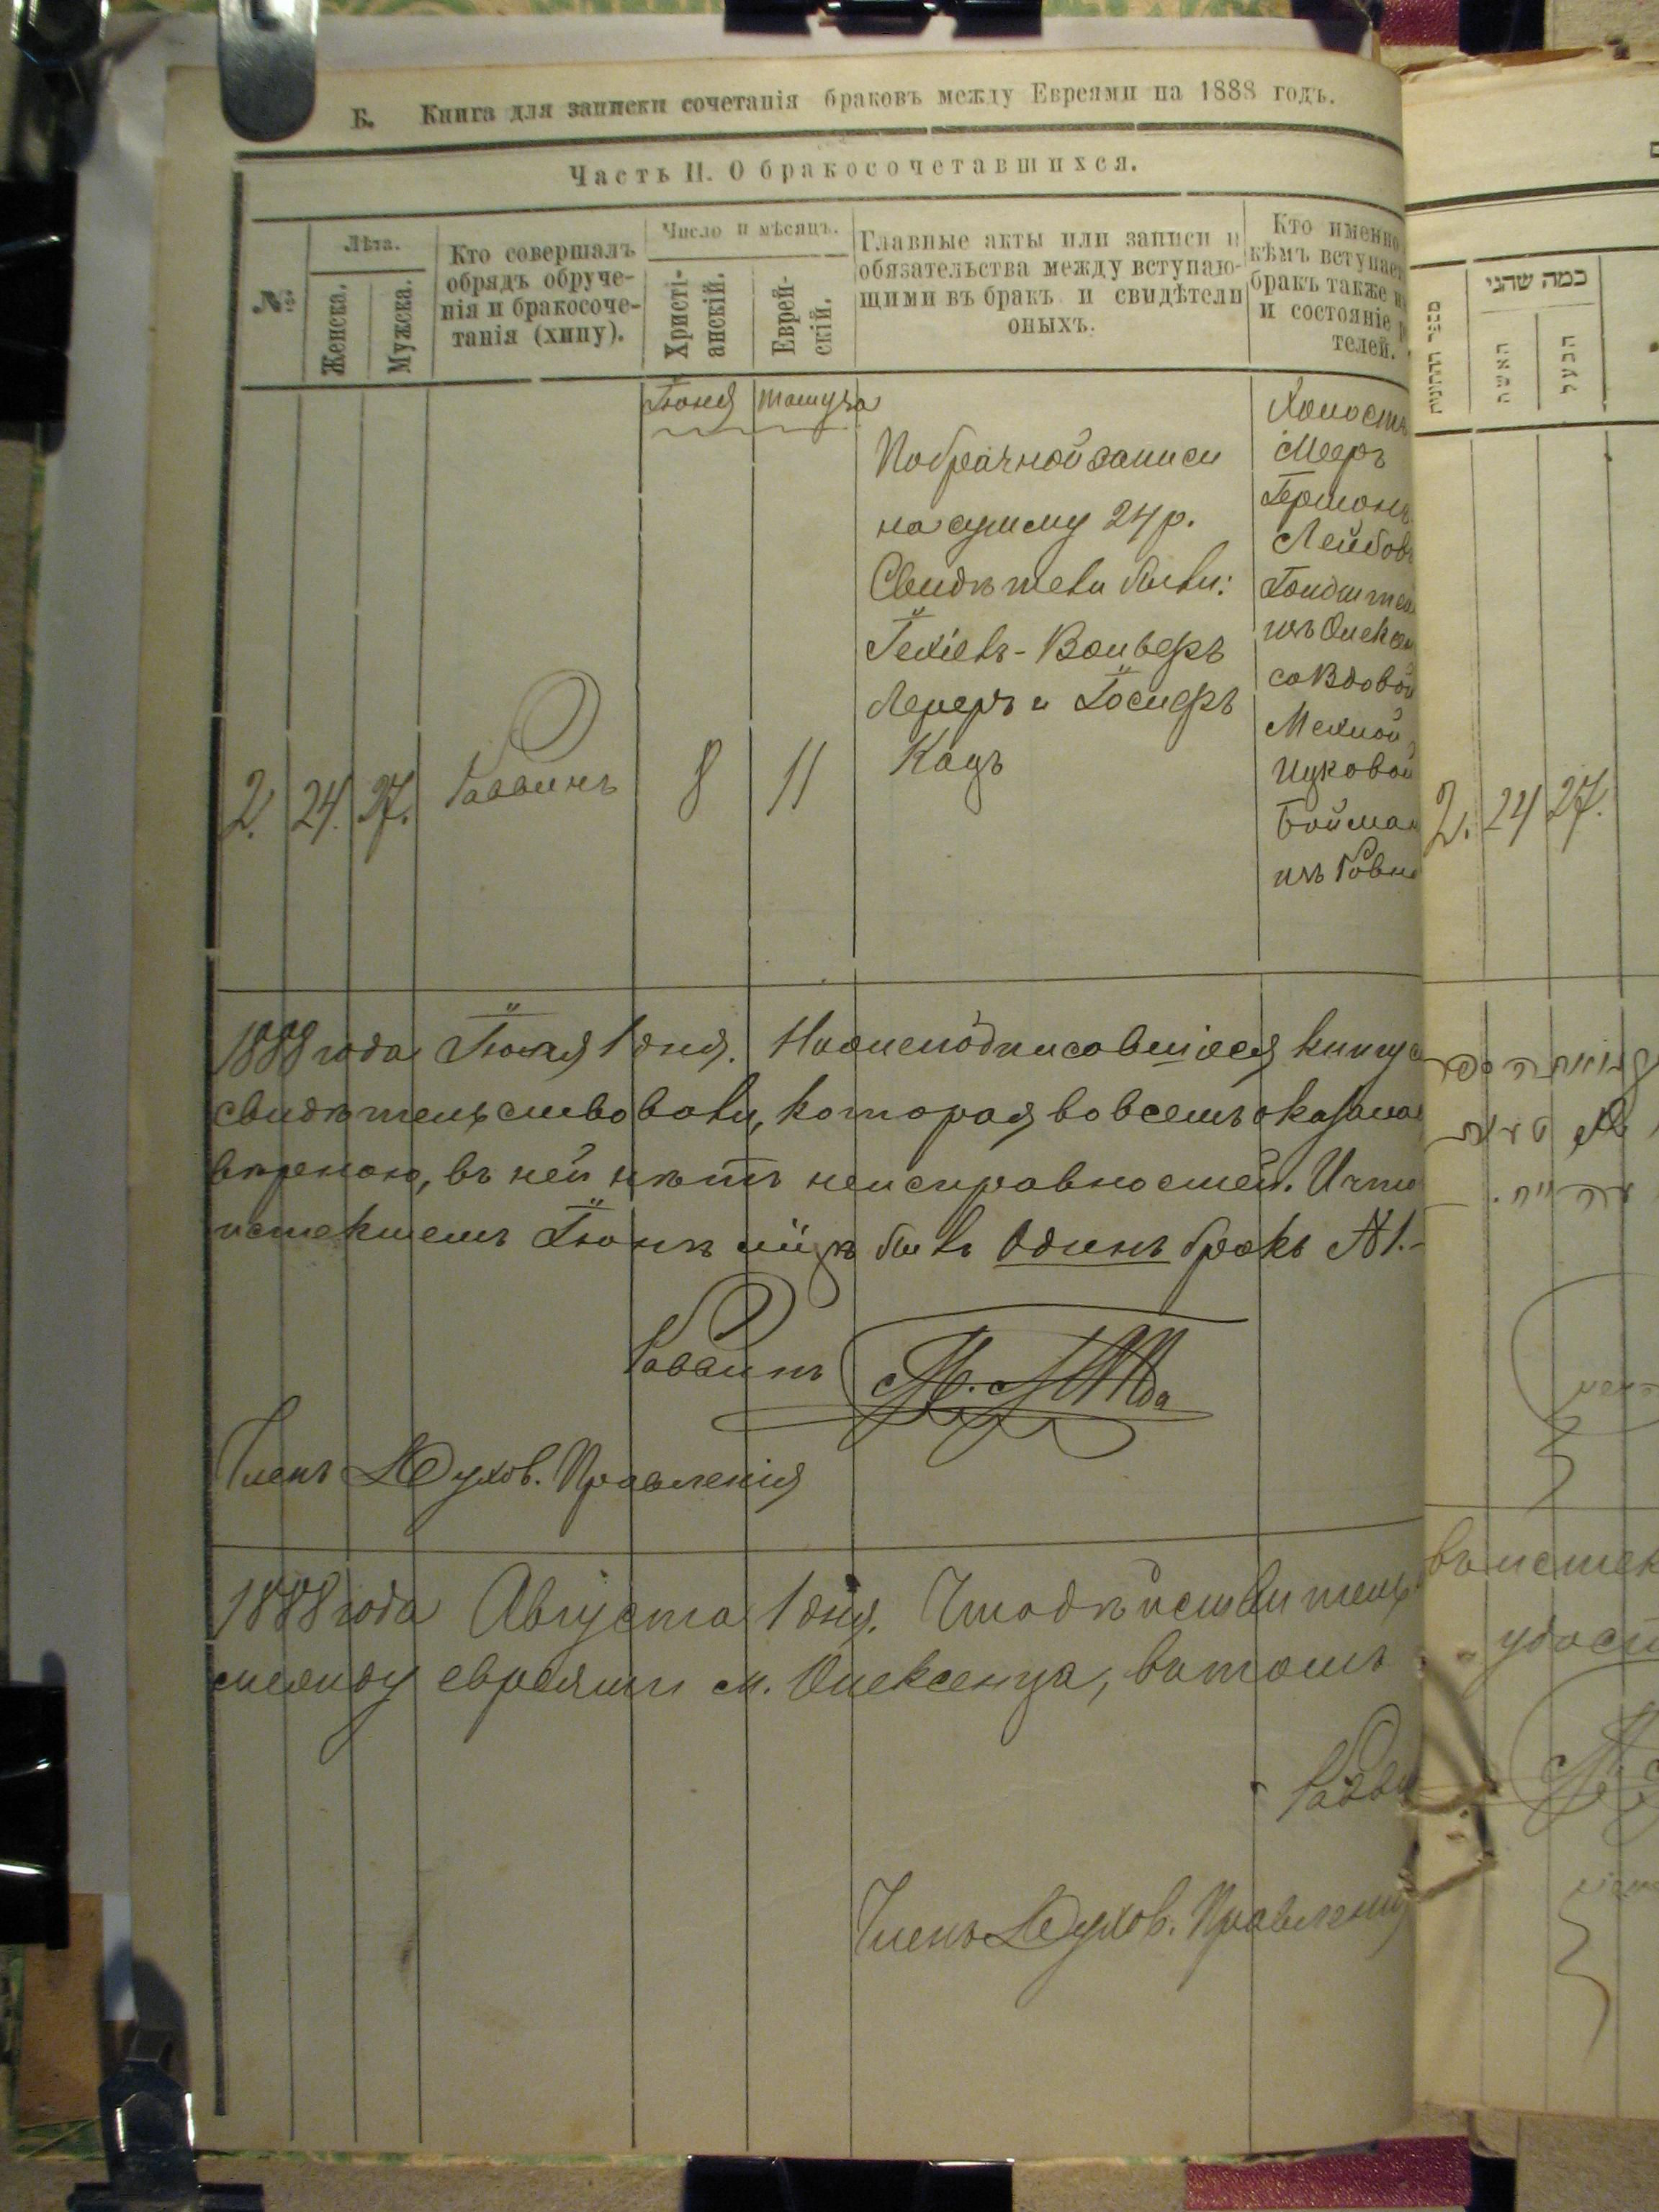 Б. Книга для записки сочетанія браковъ между Евреями на 1888 годъ.
Часть II. О бракосочетавшихся.
№
Лѣта.
Женска.
Мужска.
Кто совершалъ
обрядъ обруче-
нія и бракосоче-
танія (хипу).
Число и мѣсяцъ.
Христі-
анскій.
Еврей-
скій.
Главные акты или записи и
обязательства между вступаю-
щими въ бракъ и свидѣтели
оныхъ.
Кто именно
кѣмъ вступает
бракъ также и
и состояніе р
телей.
Іюня
Тамуза
По брачной записи
на сумму 24 р.
Свидѣтели были:
Іехіель-Вольфъ
Лернеръ и Іосифъ
Кацъ
Холостъ
Мееръ
Гершонъ
Лейбов
изъ Олексен
со вдовой
Мехлой
Ицковой
Бойман
изъ Ровно
2. 24. 27. Раввинъ 8 11
1888 года Іюля 1 дня. Нижеподписавшіеся книгу с
свидѣтельствовали, которая во всемъ оказалас
вѣрною, въ ней нѣтъ неисправностей. И что
истекшемъ Іюнѣ м-цѣ былъ Одинъ бракъ №1.-
Раввинъ
Членъ Духов. Правленія
1888 года Августа 1 дня. Что дѣйствитель
между евреями м. Олексенца, въ томъ
Равви
Членъ Духов. Правленія
מספר החתונות
כמה שהני
האשה
הבעל
2. 24 27.
въ истек
удост